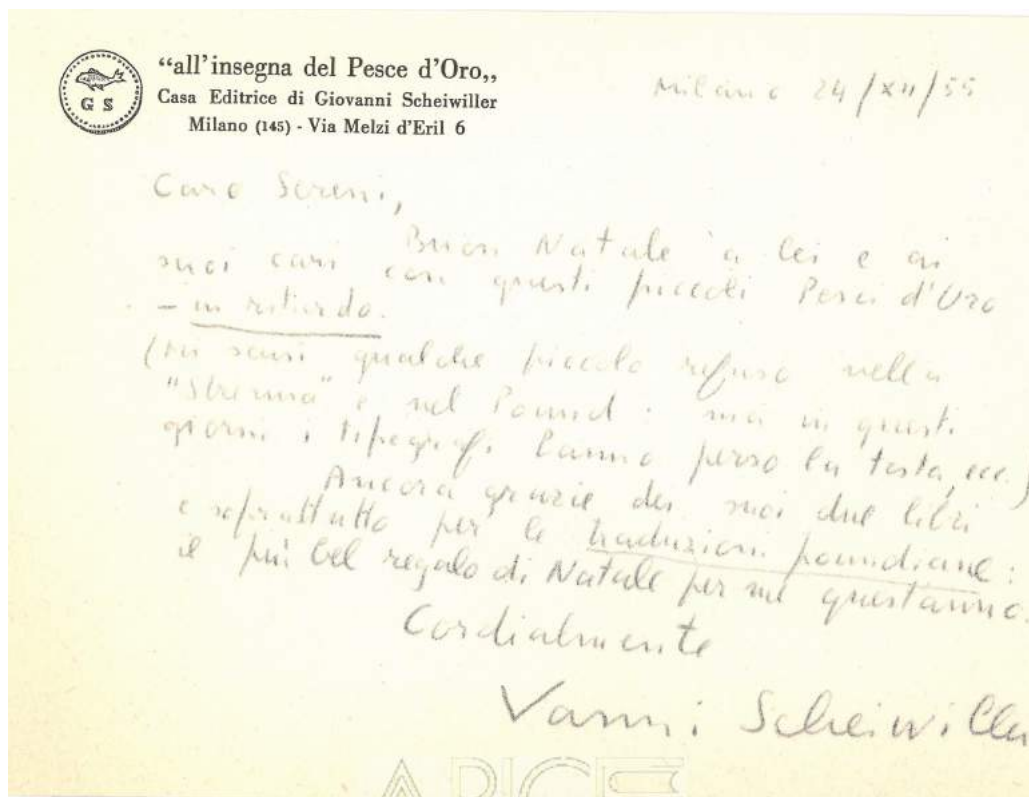 G S
“all'insegna del Pesce d'Oro„
Casa Editrice di Giovanni Scheiwiller
Milano (145) - Via Melzi d'Eril 6
Milano 24/XII/55
Caro Sereni,
Buon Natale a lei e ai
suoi cari con questi piccoli Pesci d'Oro
- in ritardo.
(Mi scusi qualche piccolo refuso nella
"Strenna" e nel Pound: ma in questi
giorni i tipografi hanno perso la testa, ecc.)
Ancora grazie dei suoi due libri
e soprattutto per le traduzioni poundiane:
il più bel regalo di Natale per me quest'anno.
Cordialmente
Vanni Scheiwiller
APICE